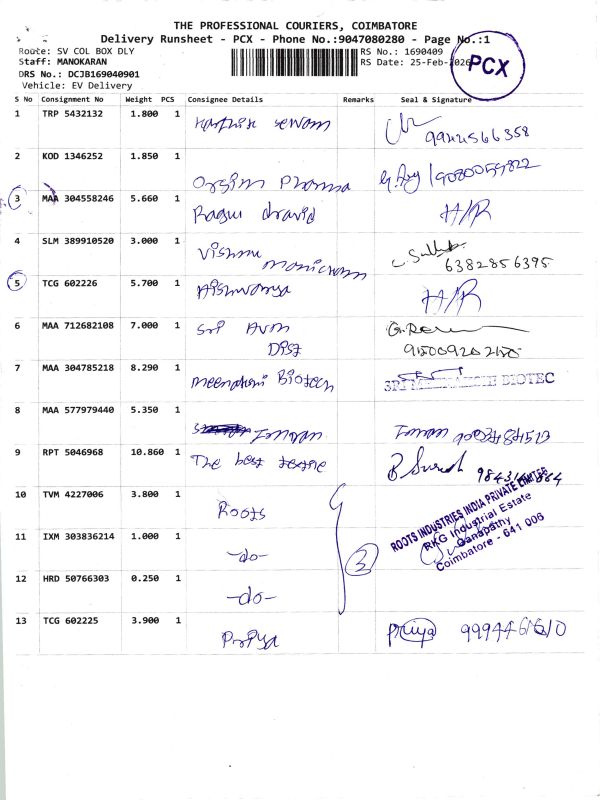 THE PROFESSIONAL COURIERS, COIMBATORE
Delivery Runsheet - PCX - Phone No.:9047080280 - Page No.:1
Route: SV COL BOX DLY
RS No.: 1690409
Staff: MANOKARAN
RS Date: 25-Feb-2026
PCX
DRS No.: DCJB169040901
Vehicle: EV Delivery
S No Consignment No Weight PCS Consignee Details Remarks Seal & Signature
1 TRP 5432132 1.800 1
9944566358
2 KOD 1346252 1.850 1 Orsim Pharma
3 MAA 304558246 5.660 1 Ragu dravid H/R
4 SLM 389910520 3.000 1 Vishnu
6382856395
5 TCG 602226 5.700 1 Aishwarya H/R
6 MAA 712682108 7.000 1 Sri Avm
Dist
7 MAA 304785218 8.290 1 Meenakshi Biotech BIOTEC
8 MAA 577979440 5.350 1 Imran Imran
9 RPT 5046968 10.860 1 The best B Suresh
10 TVM 4227006 3.800 1 Roots
ROOTS INDUSTRIES INDIA PRIVATE LIMITED
RKG Industrial Estate
Ganapathy
Coimbatore - 641 006
11 IXM 303836214 1.000 1 -do-
3
12 HRD 50766303 0.250 1 -do-
13 TCG 602225 3.900 1 Priya Priya